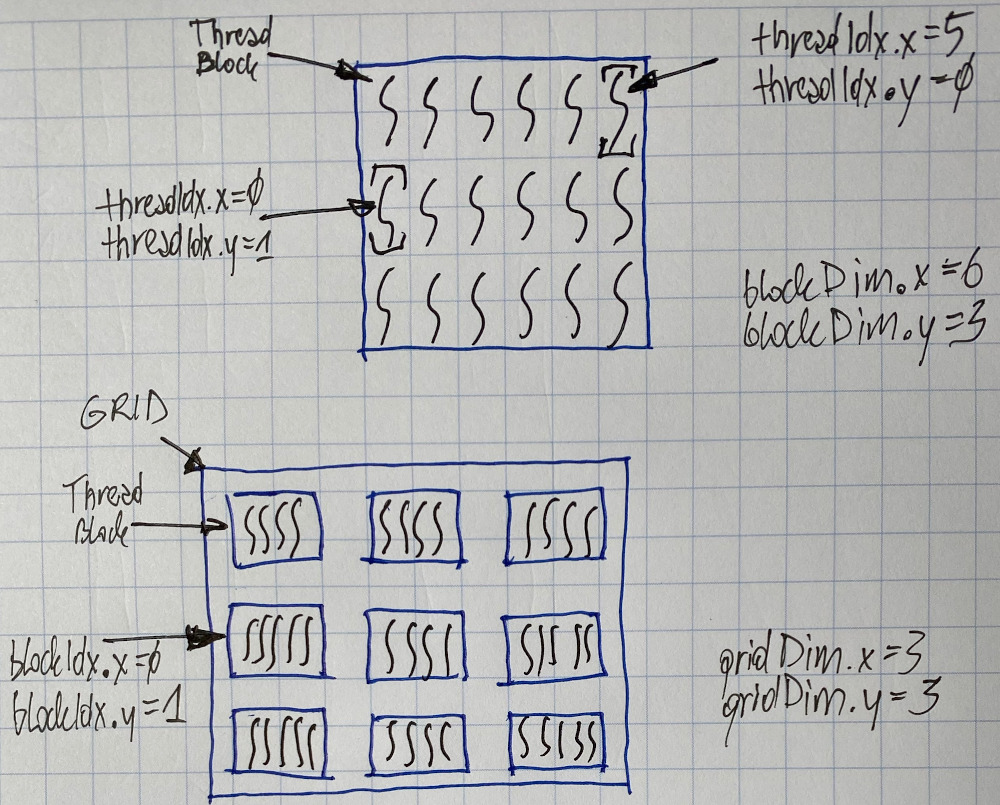 Thread
Block
threadIdx.x=5
threadIdx.y=0
threadIdx.x=0
threadIdx.y=1
blockDim.x=6
blockDim.y=3
GRID
Thread
Block
blockIdx.x=0
blockIdx.y=1
gridDim.x=3
gridDim.y=3